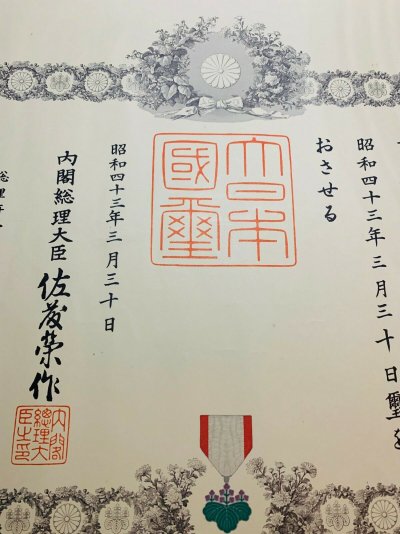 昭和四十三年三月三十日璽を
おさせる
大日本
國璽
昭和四十三年三月三十日
内閣総理大臣 佐藤榮作
内閣
總理大
臣之印
総理